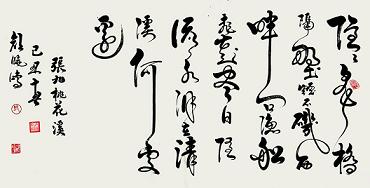 隱隱飛橋
隔野煙石磯西
畔問漁船
桃花盡日隨
流水洞在清
溪何處
邊
張旭桃花溪
己丑